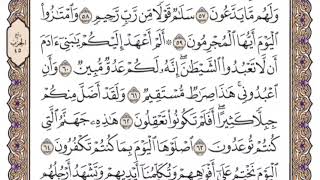 وَلَهُم مَّا يَدَّعُونَ ﴿٥٧﴾ سَلَٰمٌ قَوْلًا مِّن رَّبٍّ رَّحِيمٍ ﴿٥٨﴾ وَٱمْتَٰزُوا۟
ٱلْيَوْمَ أَيُّهَا ٱلْمُجْرِمُونَ ﴿٥٩﴾ ۞ أَلَمْ أَعْهَدْ إِلَيْكُمْ يَٰبَنِىٓ ءَادَمَ
أَن لَّا تَعْبُدُوا۟ ٱلشَّيْطَٰنَ ۖ إِنَّهُۥ لَكُمْ عَدُوٌّ مُّبِينٌ ﴿٦٠﴾ وَأَنِ
ٱعْبُدُونِى ۚ هَٰذَا صِرَٰطٌ مُّسْتَقِيمٌ ﴿٦١﴾ وَلَقَدْ أَضَلَّ مِنكُمْ
جِبِلًّا كَثِيرًا ۖ أَفَلَمْ تَكُونُوا۟ تَعْقِلُونَ ﴿٦٢﴾ هَٰذِهِۦ جَهَنَّمُ ٱلَّتِى
كُنتُمْ تُوعَدُونَ ﴿٦٣﴾ ٱصْلَوْهَا ٱلْيَوْمَ بِمَا كُنتُمْ تَكْفُرُونَ ﴿٦٤﴾
ٱلْيَوْمَ نَخْتِمُ عَلَىٰٓ أَفْوَٰهِهِمْ وَتُكَلِّمُنَآ أَيْدِيهِمْ وَتَشْهَدُ أَرْجُلُهُم
الحزب
٤٥